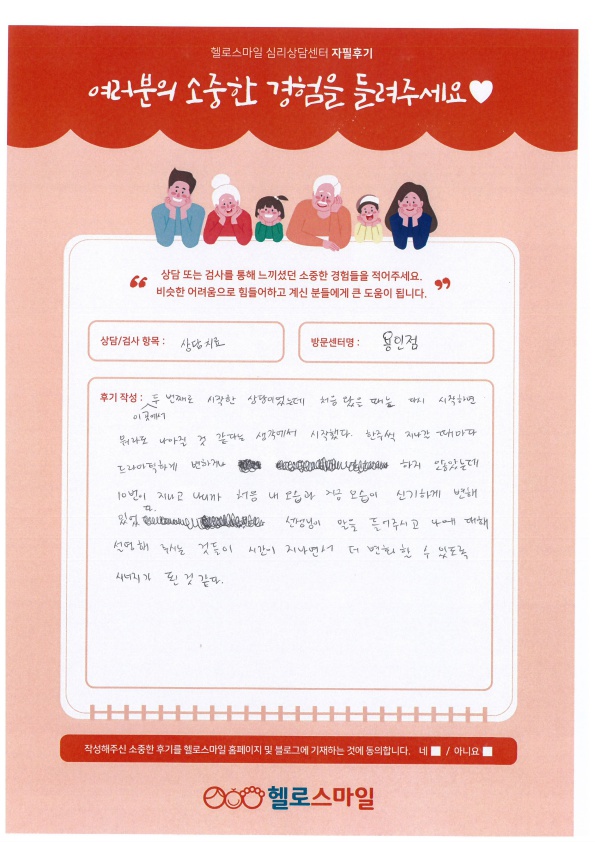 헬로스마일 심리상담센터 자필후기
여러분의 소중한 경험을 들려주세요
상담 또는 검사를 통해 느끼셨던 소중한 경험들을 적어주세요.
비슷한 어려움으로 힘들어하고 계신 분들에게 큰 도움이 됩니다.
상담/검사 항목 : 상담치료
방문센터명 : 용인점
후기 작성 : 두 번째로 시작한 상담이었는데 처음 왔은 때는 다시 시작하면
이곳에서
뭐라도 나아질 것 같다는 생각에서 시작했다. 한주씩 지나갈 때마다
드라마틱하게 변하거나 하지 않았는데
10번이 지나고 나니까 처음 내 모습과 지금 모습이 신기하게 변해
있었다. 선생님이 말을 들어주시고 나에 대해
설명해 주시는 것들이 시간이 지나면서 더 변화할 수 있도록
시너지가 된 것 같다.
작성해주신 소중한 후기를 헬로스마일 홈페이지 및 블로그에 기재하는 것에 동의합니다. 네 / 아니요
헬로스마일